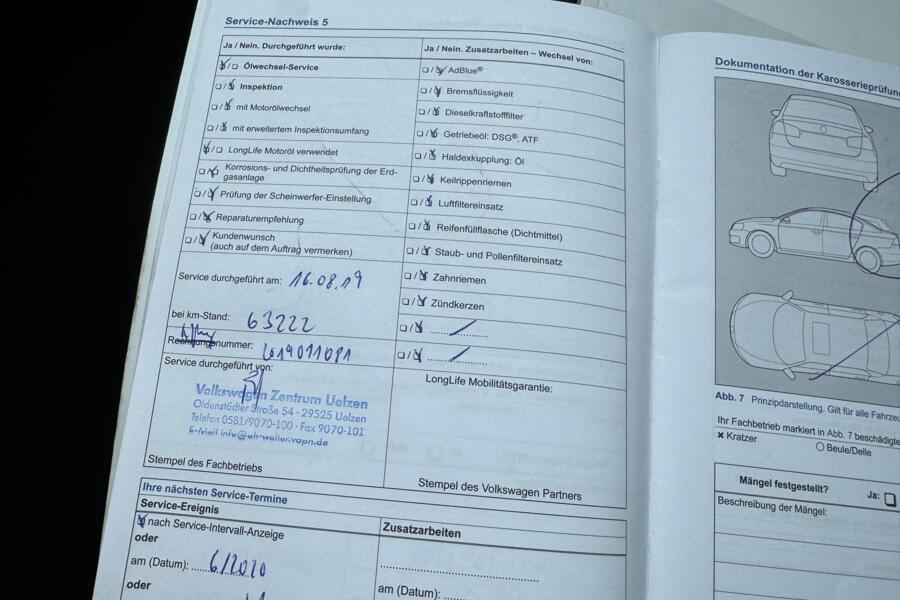 Service-Nachweis 5
Ja / Nein. Durchgeführt wurde:
Ölwechsel-Service
Inspektion
mit Motorölwechsel
mit erweitertem Inspektionsumfang
LongLife Motoröl verwendet
Korrosions- und Dichtheitsprüfung der Erd-
gasanlage
Prüfung der Scheinwerfer-Einstellung
Reparaturempfehlung
Kundenwunsch
(auch auf dem Auftrag vermerken)
Service durchgeführt am: 16.08.19
bei km-Stand: 63222
Rechnungsnummer:
Service durchgeführt von:
Volkswagen Zentrum Uelzen
Oldenstädter Straße 54 · 29525 Uelzen
Telefon 0581/9070-100 · Fax 9070-101
Stempel des Fachbetriebs
Ja / Nein. Zusatzarbeiten – Wechsel von:
AdBlue®
Bremsflüssigkeit
Dieselkraftstofffilter
Getriebeöl: DSG®, ATF
Haldexkupplung: Öl
Keilrippenriemen
Luftfiltereinsatz
Reifenfüllflasche (Dichtmittel)
Staub- und Pollenfiltereinsatz
Zahnriemen
Zündkerzen
LongLife Mobilitätsgarantie:
Stempel des Volkswagen Partners
Ihre nächsten Service-Termine
Service-Ereignis
nach Service-Intervall-Anzeige
oder
am (Datum): 6/2020
oder
Zusatzarbeiten
am (Datum):
Dokumentation der Karosserieprüfun
Abb. 7 Prinzipdarstellung. Gilt für alle Fahrze
Ihr Fachbetrieb markiert in Abb. 7 beschädigte
× Kratzer
Beule/Delle
Mängel festgestellt?
Ja:
Beschreibung der Mängel: